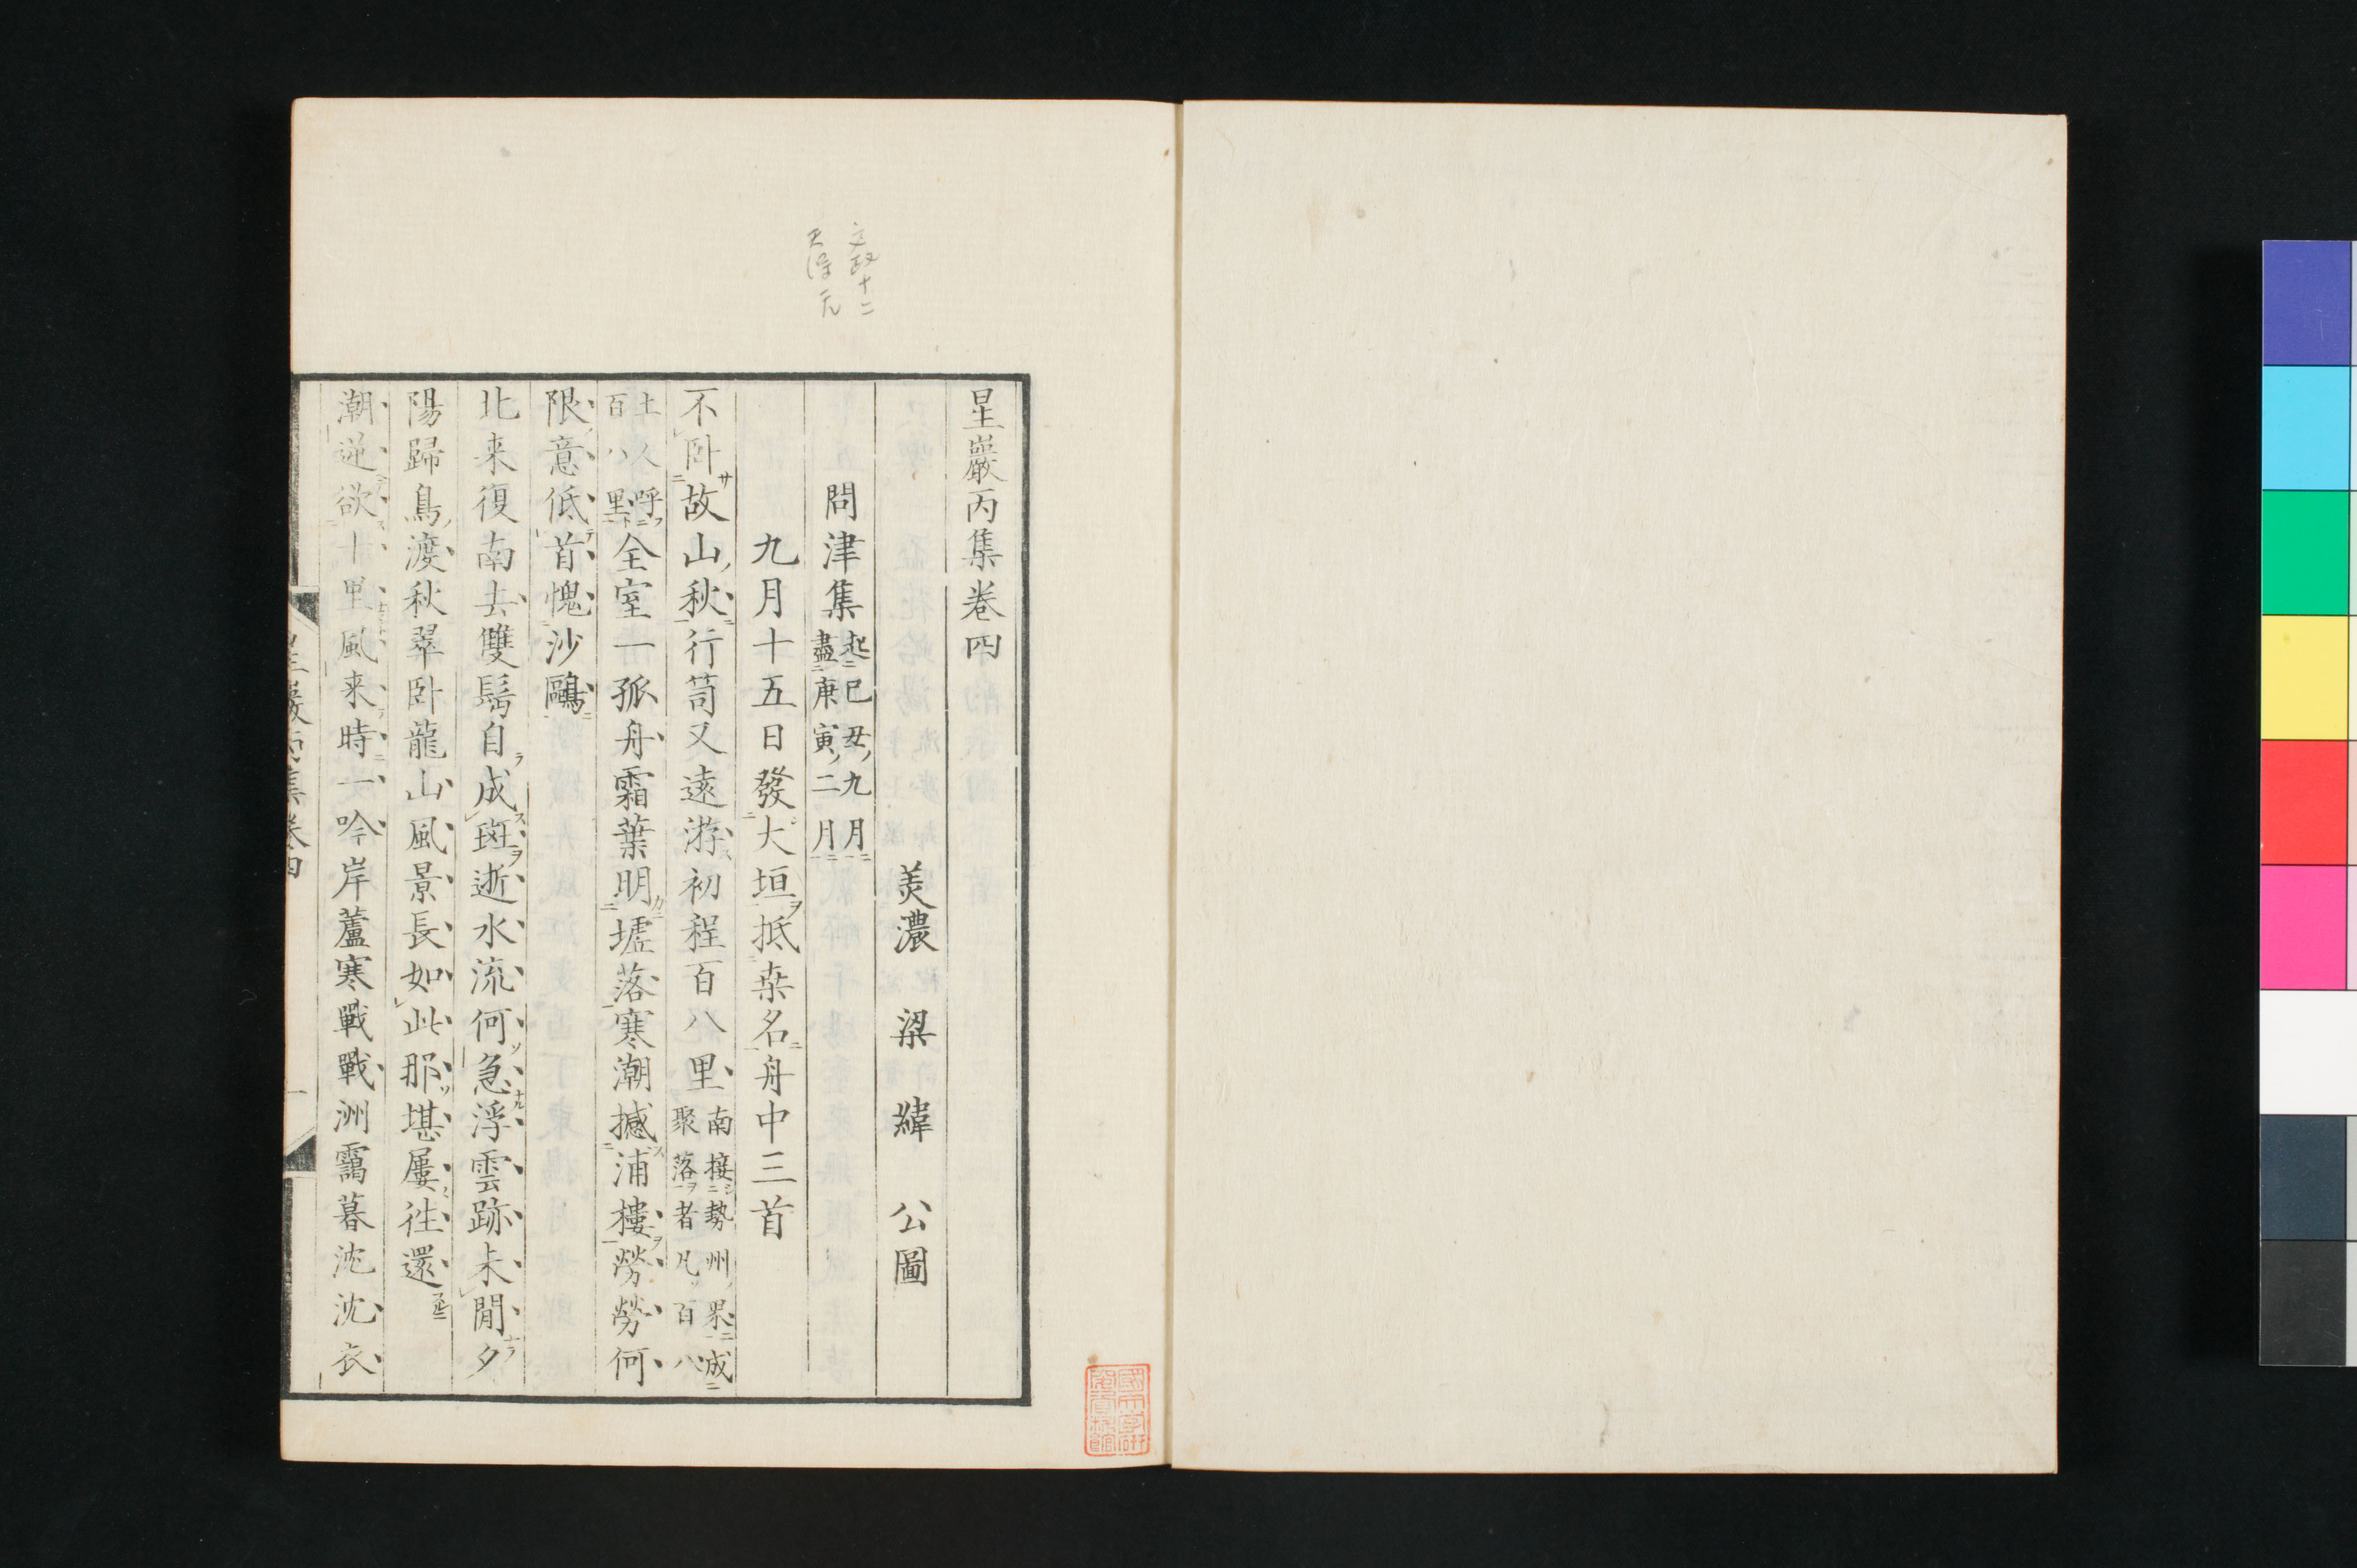 文政十二
天保元
星巖丙集卷四
美濃 梁緯 公圖
問津集 起己丑九月盡庚寅二月
九月十五日發大垣抵桑名舟中三首
不卧故山秋行笥又遠游初程百八里 南接勢州界成聚落者凡百八
土人呼百八里 全室一孤舟霜葉明墟落寒潮撼浦樓勞勞何
限意低首愧沙鷗
北来復南去雙鬂自成斑逝水流何急浮雲跡未閒夕
陽歸鳥渡秋翠卧龍山風景長如此那堪屢往還
潮逆欲十里風来時一吟岸蘆寒戰戰洲靄暮沈沈衣
星巖丙集卷四
一